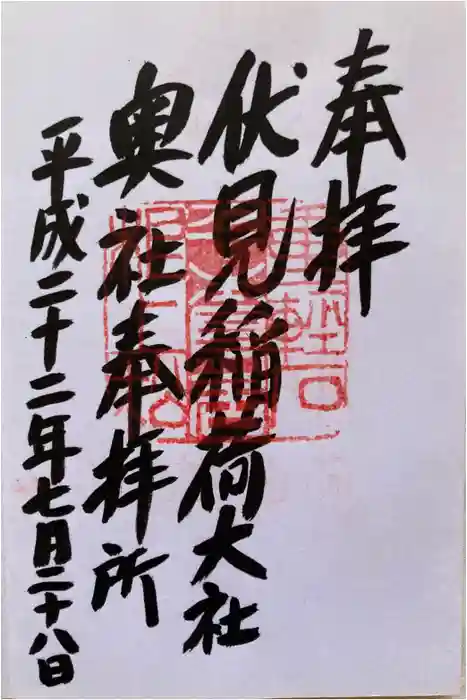 奉拝
伏見稲荷大社
奥社奉拝所
平成二十二年七月二十八日